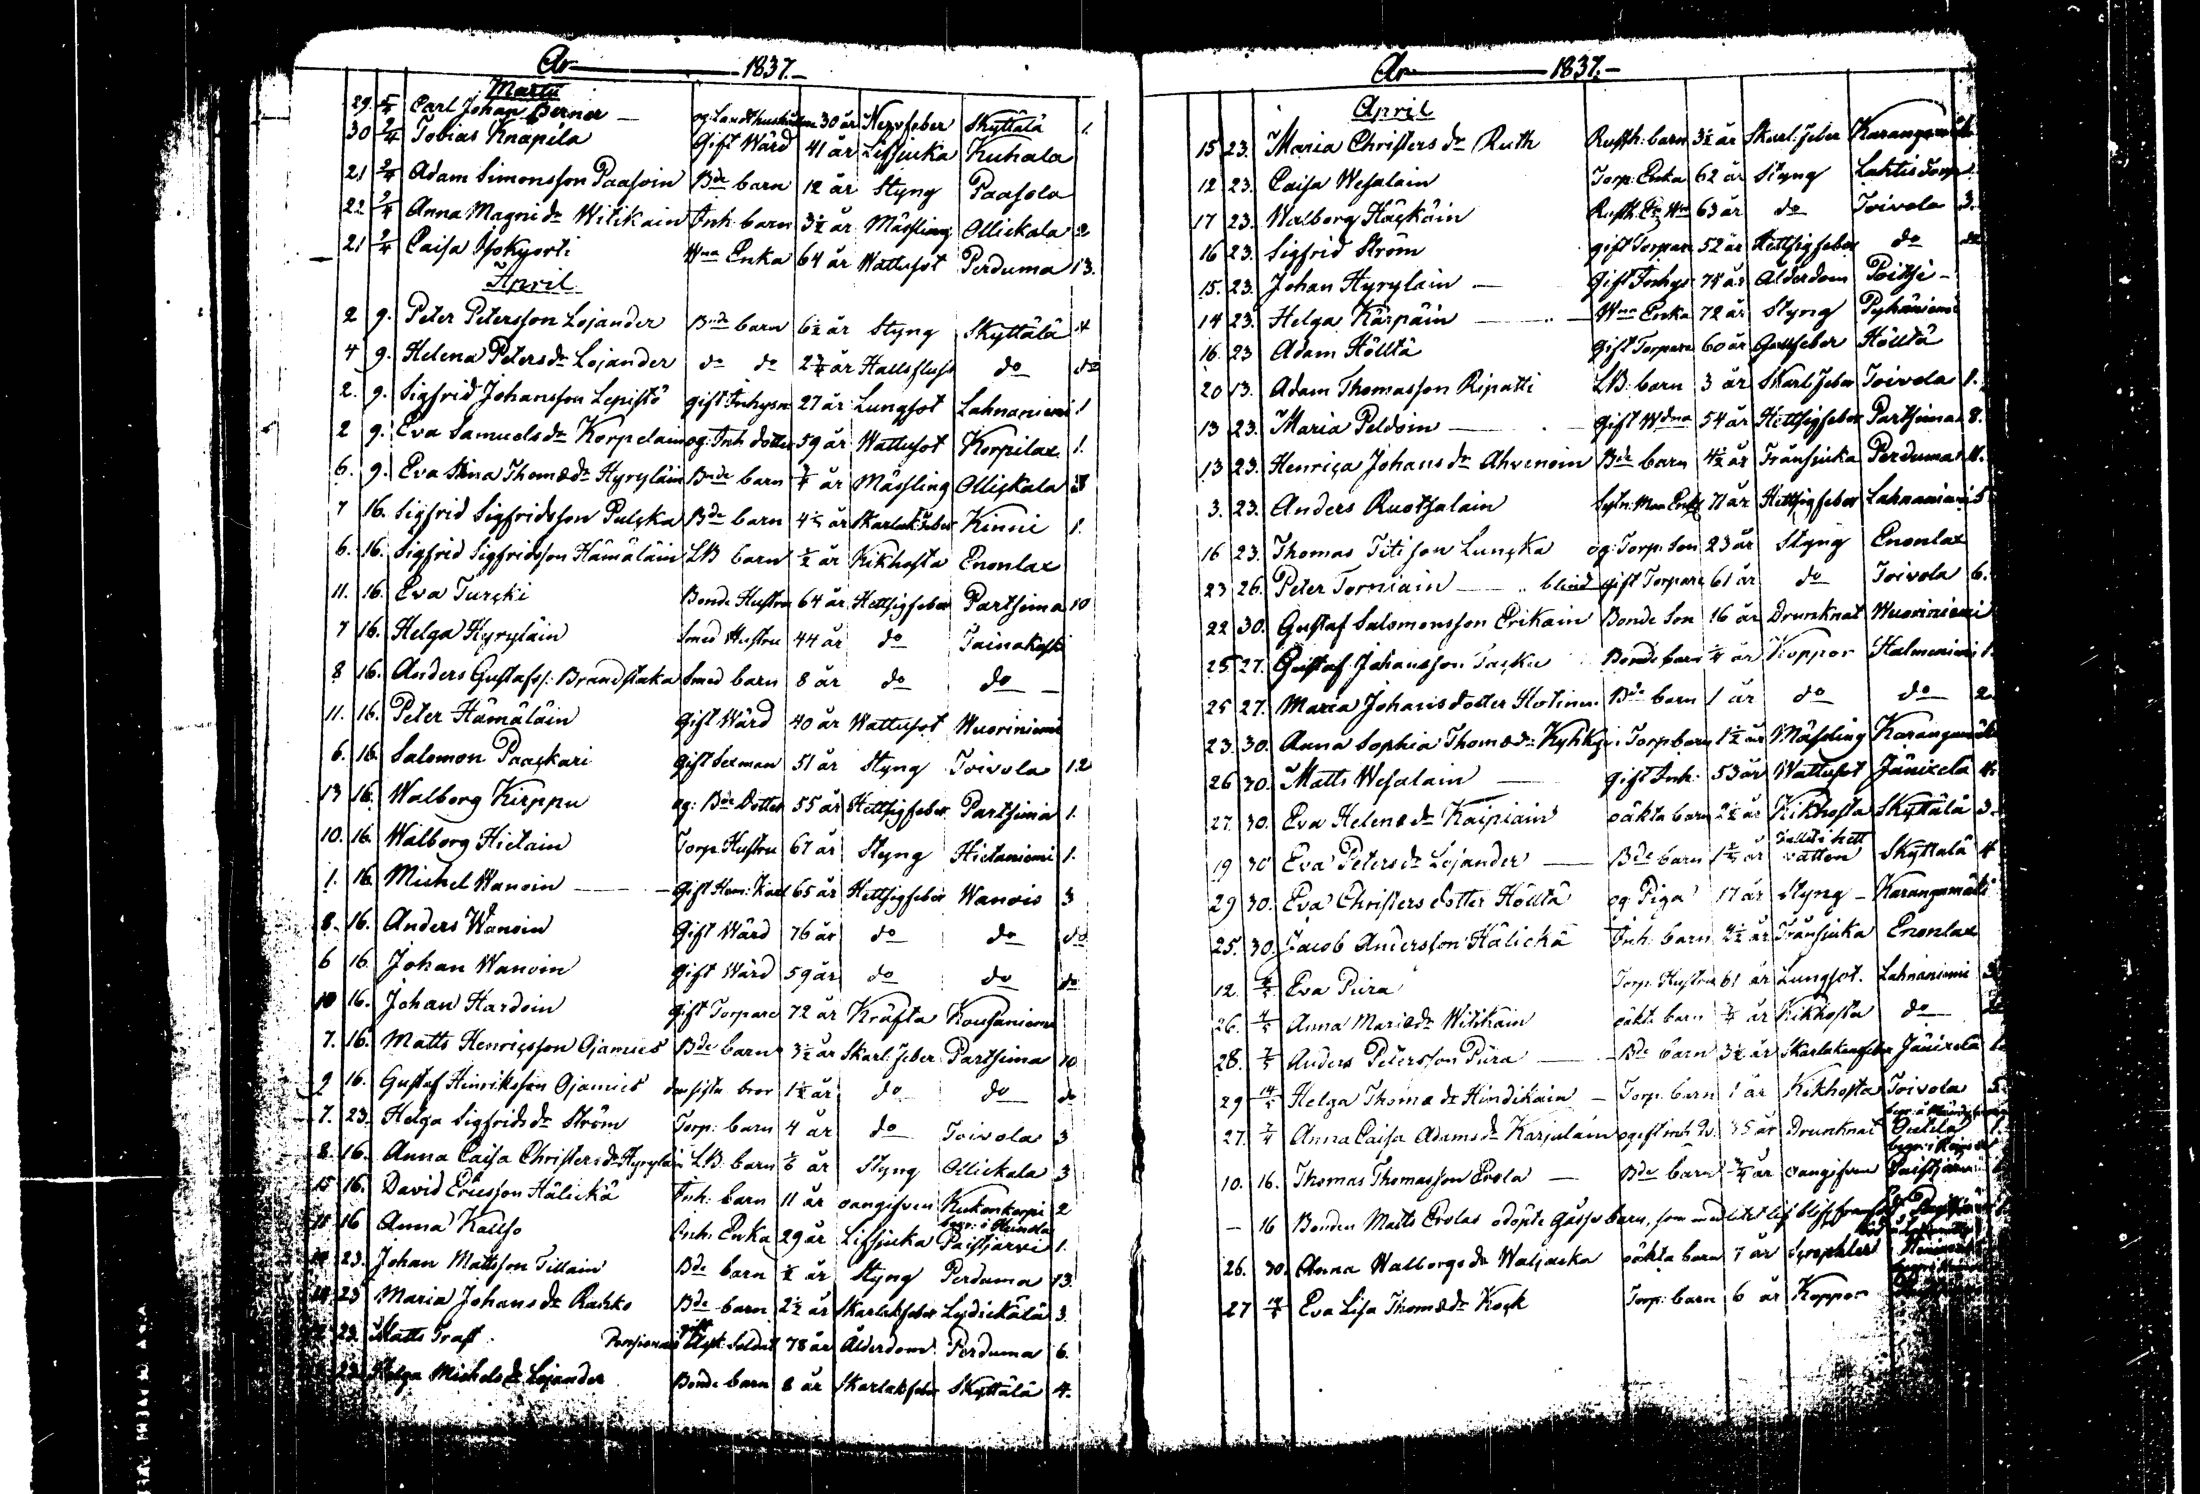 År 1837.
Martii
29. 5/4 Carl Johan Berner og: Landthushålln 30 år Nervfeber Skyttälä 1.
30 2/4 Tobias Knapila Gift Wärd 41 år Lifsjuka Kuhala
21 2/4 Adam Simonsson Paasoin Bde barn 12 år Styng Paasola
22 2/4 Anna Magni dr Witikain Inh: barn 3½ år Mässling Ollickala 2
21 2/4 Caisa Isokyorti Wna Enka 64 år Wattusot Perduma 13.
April
2 9. Peter Petersson Lojander Bnde barn 6½ år Styng Skyttälä 4
4 9. Helena Peters dr Lojander do do 2¾ år Halsfluss do do
2. 9. Sigfrid Johansson Lepistö gift Inhyse 27 år Lungsot Lahnaniemi 1
2 9. Eva Samuels dr Korpelain og: Inh dotter 59 år Wattusot Korpilax 1.
6. 9. Eva Stina Thomæ dr Hyryläin Bnde barn ¾ år Mässling Ollickala 3
7 16. Sigfrid Sigfridsson Pulcka Bde barn 4½ år Skarlak: feber Kinni 1.
6. 16. Sigfrid Sigfridsson Hämäläin LB barn ½ år Kikhosta Enonlax
11. 16. Eva Turcki Bonde Hustru 64 år Hettsigfeber Partsima 10
7 16. Helga Hyryläin Smed Hustru 44 år do Tainakoski
8 16. Anders Gustafs: Brandstaka Smed barn 8 år do do
11. 16. Peter Hämäläin Gift Wärd 40 år Wattusot Wuoriniemi
6. 16. Salomon Paackari Gift Sexman 51 år Styng Toivola 12
13 16. Walborg Kirppu og: Bde Dotter 55 år Hettsigfeber Partsima 1.
10. 16. Walborg Hietain Torp: Hustru 67 år Styng Hietaniemi 1.
1. 16. Michel Wanoin Gift Hem: Karl 65 år Hettsigfeber Wanois 3
8. 16. Anders Wanoin Gift Wärd 76 år do do do
6 16. Johan Wanoin Gift Wärd 59 år do do do
10 16. Johan Hardoin Gift Torpare 72 år Kräfta Kousaniemi
7. 16. Matts Henricsson Ojamies Bde barn 3½ år Skarl: feber Partsima 10
9 16. Gustaf Hinriksson Ojamies den sista bror 1½ år do do do
7. 23. Helga Sigfrids dr Ström Torp: barn 4 år do Toivola 3
8. 16. Anna Caisa Christers dr Hyryläin LB barn 1/6 år Styng Ollickala 3
15 16. David Ericsson Hälickä Inh: barn 11 år oangifven Kukonkorpi 2
11 16 Anna Kallio Inh: Enka 29 år Lifsjuka begr: i Heinola Paistjärvi 1.
14 23. Johan Mattsson Tillain Bde barn ½ år Styng Perduma 13.
14 23 Maria Johans dr Rahko Bde barn 2½ år Skarlakfeber Lydickälä 3.
23. Matts Traft Pensionerad gift Afsk: Soldat 78 år Ålderdom Perduma 6.
23. Helga Michels dr Lojander Bonde barn 8 år Skarlakfeber Skyttälä 4.
År 1837.
April
15 23. Maria Christers dr Ruth Rusth: barn 3½ år Skarl: feber Karangamäki
12 23. Caisa Wesalain Torp: Enka 62 år Styng Lahtis torp
17 23. Walborg Häckäin 63 år do Toivola 3.
16 23. Sigfrid Ström gift Torpare 52 år Hettsigfeber do do
15. 23. Johan Hyryläin Gift Inhys 75 år Ålderdom Poitsi
14 23. Helga Kärpäin Wna Enka 72 år Styng Pyhäniemi
16. 23 Adam Hölltä Gift Torpare 60 år Gallfeber Hölltä
20 13. Adam Thomasson Ripatti LB: barn 3 år Skarl: feber Toivola 1.
13 23. Maria Peldoin Gift Wdna 54 år Hettsigfeber Partsima 8.
13 23. Henrica Johans dr Ahvenoin Bde barn 4½ år Trånsjuka Perduma 11.
3. 23. Anders Ruotsalain 71 år Hettsigfeber Lahnaniemi 5
16 23. Thomas Titi son Luncka og: Torp: Son 23 år Styng Enonlax
23 26. Peter Torniain blind gift Torpare 61 år do Toivola 6.
22 30. Gustaf Salomonsson Erikain Bonde Son 16 år Drunknat Wuoriniemi
25 27. Gustaf Johansson Tacku Bonde barn ¼ år Koppor Halmeniemi 1.
25 27. Maria Johans dotter Hotinen Bde barn 1 år do do 2.
23. 30. Anna Sophia Thomæ dr Kyhky Torp barn 1½ år Mässling Karangamäki
26 30. Matts Wesalain gift Inh: 53 år Wattusot Jänixelä 4.
27. 30. Eva Helenæ dr Kaipiain oäkta barn 2½ år Kikhosta Skyttälä 3.
19 30 Eva Peters dr Lojander Bde barn 1¾ år fallit i hett vatten Skyttälä 4
29 30. Eva Christers dotter Hölltä og: Piga 17 år Styng Karangamäki
25. 30. Jacob Andersson Hälickä Inh: barn 2½ år Trånsjuka Enonlax
12. Eva Pura Torp: Hustru 61 år Lungsot. Lahnaniemi 3
26. 4/5 Anna Mariæ dr Witikain oäkt: barn ¾ år Kikhosta do do
28. 7/5 Anders Petersson Pura Bde barn 3½ år Skarlakansfeber Jänixelä
29 14/5 Helga Thomæ dr Hindikain Torp: barn 1 år Kikhosta Toivola 5.
27. 2/4 Anna Caisa Adams dr Karjalain ogift 35 år Drunknat
10. 16. Thomas Thomasson Erola Bde barn ¾ år oangifven Paistjärvi
16 Bonden Matts Erolas odöpta Gosse barn, som med litet lif blef framfödt
26. 30. Anna Walborgs dr Waljacka oäkta barn 7 år Scrophler
27 14/5 Eva Lisa Thomæ dr Kock Torp: barn 6 år Koppor